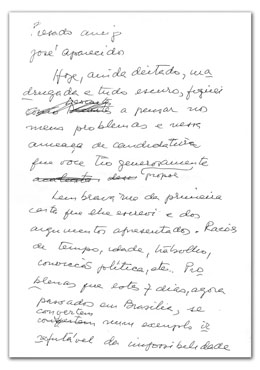 Prezado amigo
José Aparecido
Hoje, ainda deitado, ma
drugada e tudo escuro, fiquei
a pensar nos
meus problemas e nessa
ameaça de candidatura
que voce tão generosamente
propos
Lembrava-me da primeira
carta que lhe escrevi e dos
argumentos apresentados. Razões
de tempo, idade, trabalho,
convicção política, etc. Pro
blemas que estes 7 dias, agora
passados em Brasília, se
convertem
num exemplo ir
refutável da impossibilidade